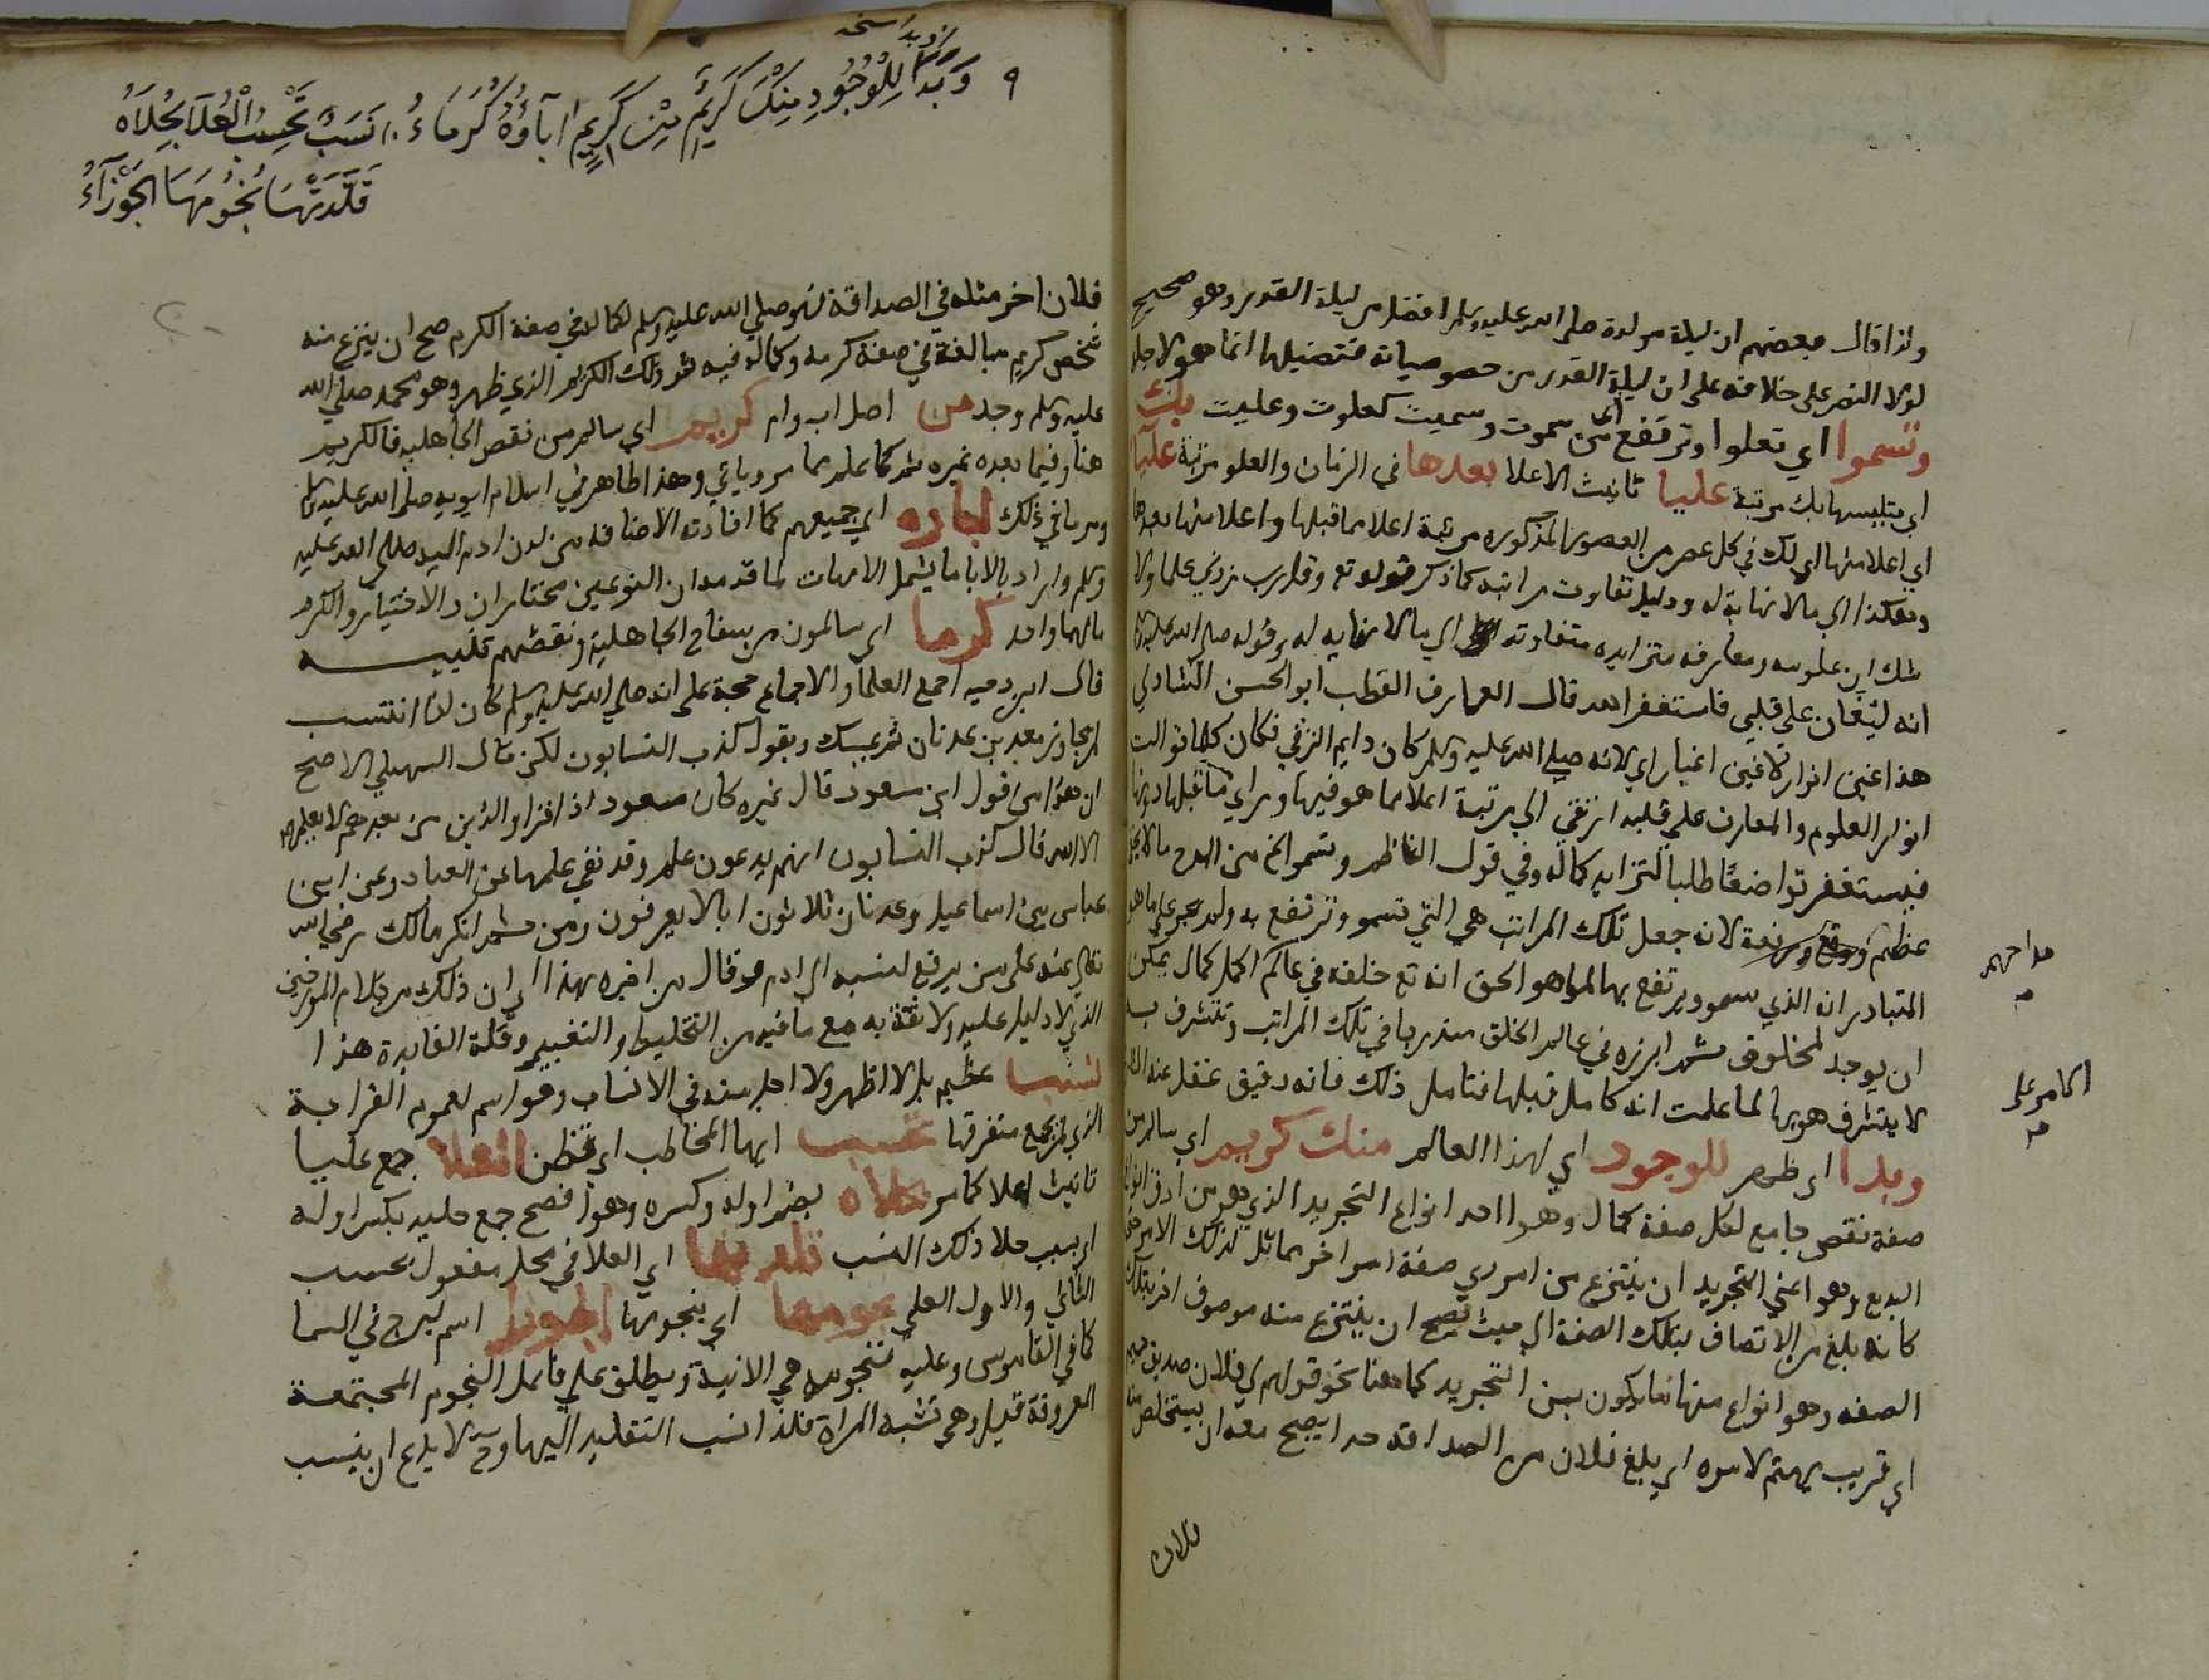 ولذا قال بعضهم ان ليلة مولده صلى الله عليه وسلم افضل من ليلة القدر وهو صحيح
لولا النص على خلافه على ان ليلة القدر من خصوصياته فتفضيلها انما هو لاجله
وتسموا اي تعلوا وترتفع من سموت وسميت كعلوت وعليت بك
اي بتلبسها بك مرتبة عليا تانيث الاعلا بعدها في الزمان والعلو مرتبة علياء
اي اعلا منها اي لك في كل عصر من العصور المذكوره مرتبة اعلا مما قبلها واعلا منها بعدها
وهكذا الى مالا نهاية له ودليل تفاوت مراتبه كما ذكر قوله تع وقل رب زدني علما ولا
شك ان علومه ومعارفه متزايده متفاوته الى مالا نهايه له وقوله صلى الله عليه وسلم
انه ليغان على قلبي فاستغفر الله قال العارف القطب ابو الحسن الشاذلي
هذا غين انوار لا غين اغيار اي لانه صلى الله عليه وسلم كان دايم الترقي فكان كلما توالت
انوار العلوم والمعارف على قلبه ارتقي الى مرتبة اعلا مما هو فيها وراي ما قبلها دونها
فيستغفر تواضعا طلبا لتزايد كماله وفي قول الناظم وتسموا الخ من المدح مالا يخفى
عظم ورفعة لانه جعل تلك المراتب هي التي تسمو وترتفع به ولم يجر على ما هو
المتبادر انه الذي يسمو ويرتفع بها لما هو الحق انه تع خلقه في عالم اكمل كمال يمكن
ان يوجد لمخلوق ثم ابرزه في عالم الخلق متدرجا في تلك المراتب وتتشرف به
لا يتشرف هو بها لما علمت انه كامل قبلها فتامل ذلك فانه دقيق غفل عنه
وبدا اي ظهر للوجود اي لهذا العالم منك كريم اي سالم من
صفة نقص جامع لكل صفة كمال وهوا احد انواع التجريد الذي هو من ادق انواع
البديع وهو اعني التجريد ان ينتزع من امر ذي صفة امر اخر مماثل لذلك الامر في
كانه بلغ من الاتصاف بتلك الصفة الى حيث يصح ان ينتزع منه موصوف اخر بتلك
الصفه وهو انواع منها ما يكون بمن التجريد كما هنا نحو قولهم لي من فلان صديق حميم
اي قريب يهتم لامره اي بلغ فلان من الصداقه حدا يصح معه ان يستخلص منه
فلان
مداحهم
الكامر على
٩
وبدا نسخه
وَبَدَا لِلْوُجُودِ مِنْكَ كَرِيمٌ مِنْ كَرِيمٍ آبَاؤُهُ كُرَمَاءُ نَسَبٌ تَحْسِبُ الْعُلَا بِحُلَاهُ
قَلَّدَتْهَا نُجُومَهَا الْجَوْزَاءُ
فلان اخر مثله في الصداقة فهو صلى الله عليه وسلم لكماله في صفة الكرم صح ان ينتزع منه
شخص كريم مبالغة في صفة كرمه وكماله فيه ثم ذلك الكريم الذي ظهر وهو محمد صلى الله
عليه وسلم وجد من اصل اب وام كريم اي سالم من نقص الجاهليه فالكريم
هنا وفيما بعده غيره ثم كما علم مما مر وياتي وهذا ظاهر في اسلام ابويه صلى الله عليه وسلم
ومر ما في ذلك اباؤه اي جميعهم كما افادته الاضافه من لدن ادم اليه صلى الله عليه
وسلم واراد بالابا ما يشمل الامهات لما قدمه ان النوعين مختاران والاختيار والكرم
مالهما واحد كرما اي سالمون من سفاح الجاهلية ونقصهم تنبيه
قال ابن دحيه اجمع العلما والاجماع حجة على انه صلى الله عليه وسلم كان اذا انتسب
لم يجاوز معد بن عدنان ثم يمسك ويقول كذب النسابون لكن قال السهيلي الاصح
ان هذا من قول ابن مسعود قال غيره كان مسعود اذا قرا والذين من بعدهم لا يعلمهم
الا الله قال كذب النسابون انهم يدعون علم وقد نفي علمها عن العباد وعن ابن
عباس بين اسماعيل وعدنان ثلاثون ابا لا يعرفون ومن ثم انكر مالك رضي الله
تعالى عنه على من يرفع نسبه الى ادم وقال من اخبره بهذا اي ان ذلك من كلام المورخين
الذي لا دليل عليه ولا ثقة به مع ما فيه من التخليط والتغيير وقلة الفايدة هذا
نسب عظيم بل لا اظهر ولا اجل منه في الانساب وهو اسم لعموم القرابة
الذي لم يجمع متفرقها تحسب ايها المخاطب اي تظن العلا جمع عليا
تانيث اعلا كما مر بحلاه بضم اوله وكسره وهو افصح جمع حليه بكسر اوله
اي بسبب حلا ذلك النسب قلدتها اي العلا في محل مفعول تحسب
الثاني والاول العلي نجومها اي بنجومها الجوزا اسم لبرج في السما
كما في القاموس وعليه فنجومها هي الاتية ويطلق على النجوم المجتمعة
المعروفة قيل وهي تشبه المراة فلذا نسب التقليد اليها وح لا يدع ان ينسب